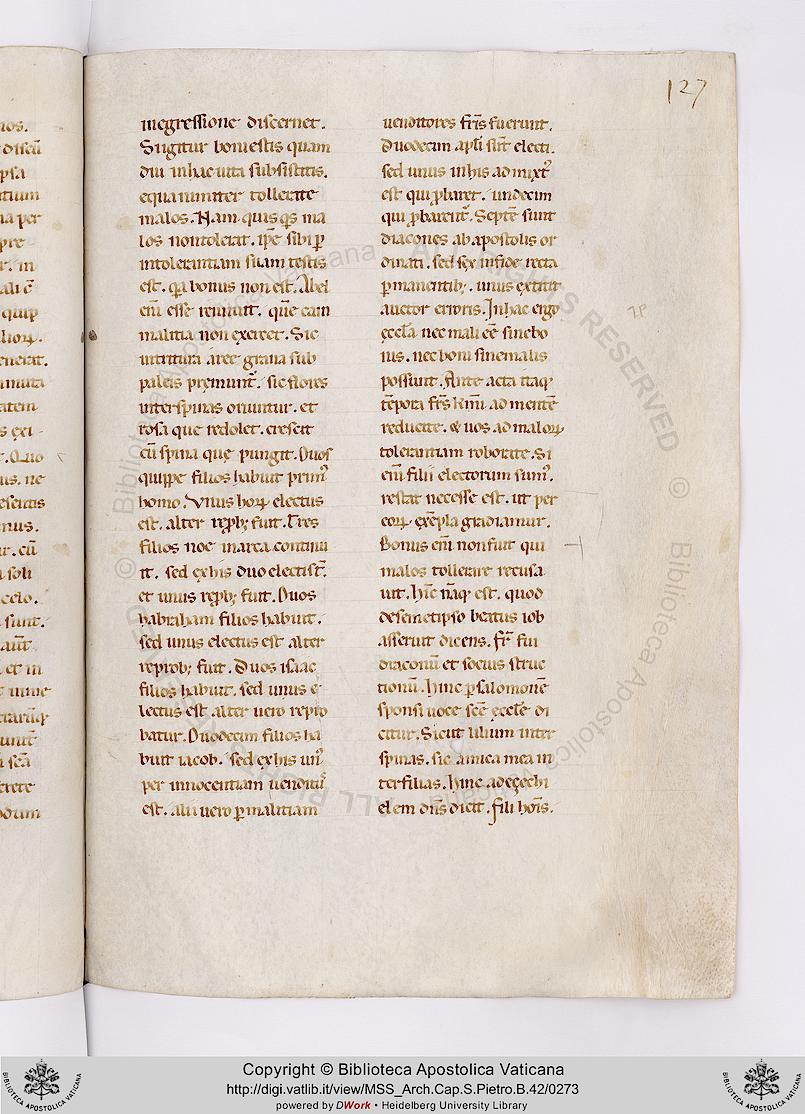 127
inegressione discernet.
Siigitur boniestis quam
diu inhacuita subsistitis.
equanimiter tollerate
malos. Nam quisqs ma
los nontolerat. ipe sibi ꝑ
intolerantiam suam testis
est. qa bonus non est. Abel
eni esse renuit. que cain
malitia non exercet. Sic
intritura aree grana sub
paleis premunt᷑. sic flores
interspinas oriuntur. et
rosa que redolet. crescit
cū spina que pungit. Duos
quippe filios habuit prim᷒
homo. Unius hoꝝ electus
est. alter reprob; fuit. Tres
filios noe inarca continu
it. sed exhis duo electi st̄.
et unus reprob; fuit. Duos
habraham filios habuit.
sed unus electus est alter
reprob; fuit. Duos isaac
filios habuit. sed unus e
lectus est. alter uero repro
batur. Duodecim filios ha
buit iacob. sed exhis un᷒
per innocentiam uendit᷒
est. alii uero ꝑmalitiam
uenditores fr̄is fuerunt.
Duodecim apl̄i sūt electi.
sed unus inhis admixt᷒
est qui ꝓbaret. undecim
qui ꝓbarent᷑. Septē sunt
diacones abapostolis or
dinati. sed sex infide recta
ꝑmanentib;. unus extitit
auctor erroris. Inhac ergo
eccl̄a nec mali eē sinebo
nis. nec boni sinemalis
possunt. Ante acta itaq;
tēpora fr̄s km̄i ad mentē
reducite. & uos admaloꝝ
tolerantiam roborate. Si
eni filii electorum sum᷒.
restat necesse est. ut per
eoꝝ exēpla gradiamur.
Bonus eni nonfuit qui
malos tollerare recusa
uit. hinc nāq; est. quod
desemetipso beatus iob
asseruit dicens. Fr̄ fui
diaconū et socius struc
tionū. hinc ꝑsalomonē
sponsi uoce scē eccl̄e di
citur. Sicut lilium inter
spinas. sic amica mea in
terfilias. hinc adezechi
elem dn̄s dicit. fili hoīs.
Copyright © Biblioteca Apostolica Vaticana
http://digi.vatlib.it/view/MSS_Arch.Cap.S.Pietro.B.42/0273
powered by DWork • Heidelberg University Library